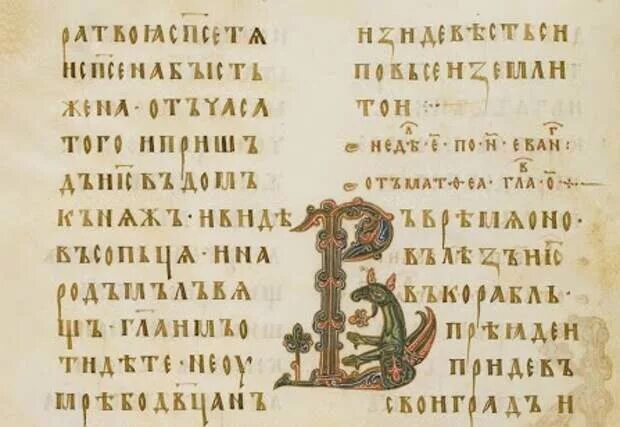 РАТВОꙖСП҃СЕТѦ
ИСП҃СЕНАБꙐСТЬ
ЖЕНА · ОТЪЧАСА
ТОГО ИПРИШЬ
ДЪІС҃ВЪДОМЪ
КЪНѦЖЬ · ИВИДѢ
ВЪСОПЬЦѦ · ИНА
РОДЪМЪЛВѦ
ЩЬ · ГЛ҃АИМЪО
ТИДѢТЕ · НЕОУ
МРѢБОДВ҃ЦАНЪ
ИЗИДЕВѢСТЬСИ
ПОВЬСЕИЗЕМЛИ
ТОИ ·:·
НЕДѢⷧ · Е҃ · ПО · Н҃ · ЕВАНⷢ ·
ОТЪМАТѲЕА · ГЛАⷡ · О҃ ·
ВЪВРѢМѦОНО
ВЪЛѢЗЪІС҃
ВЪКОРАБЛЬ ·
ПРѢꙖДЕИ
ПРИДЕВЪ
СВОИГРАДЪИ